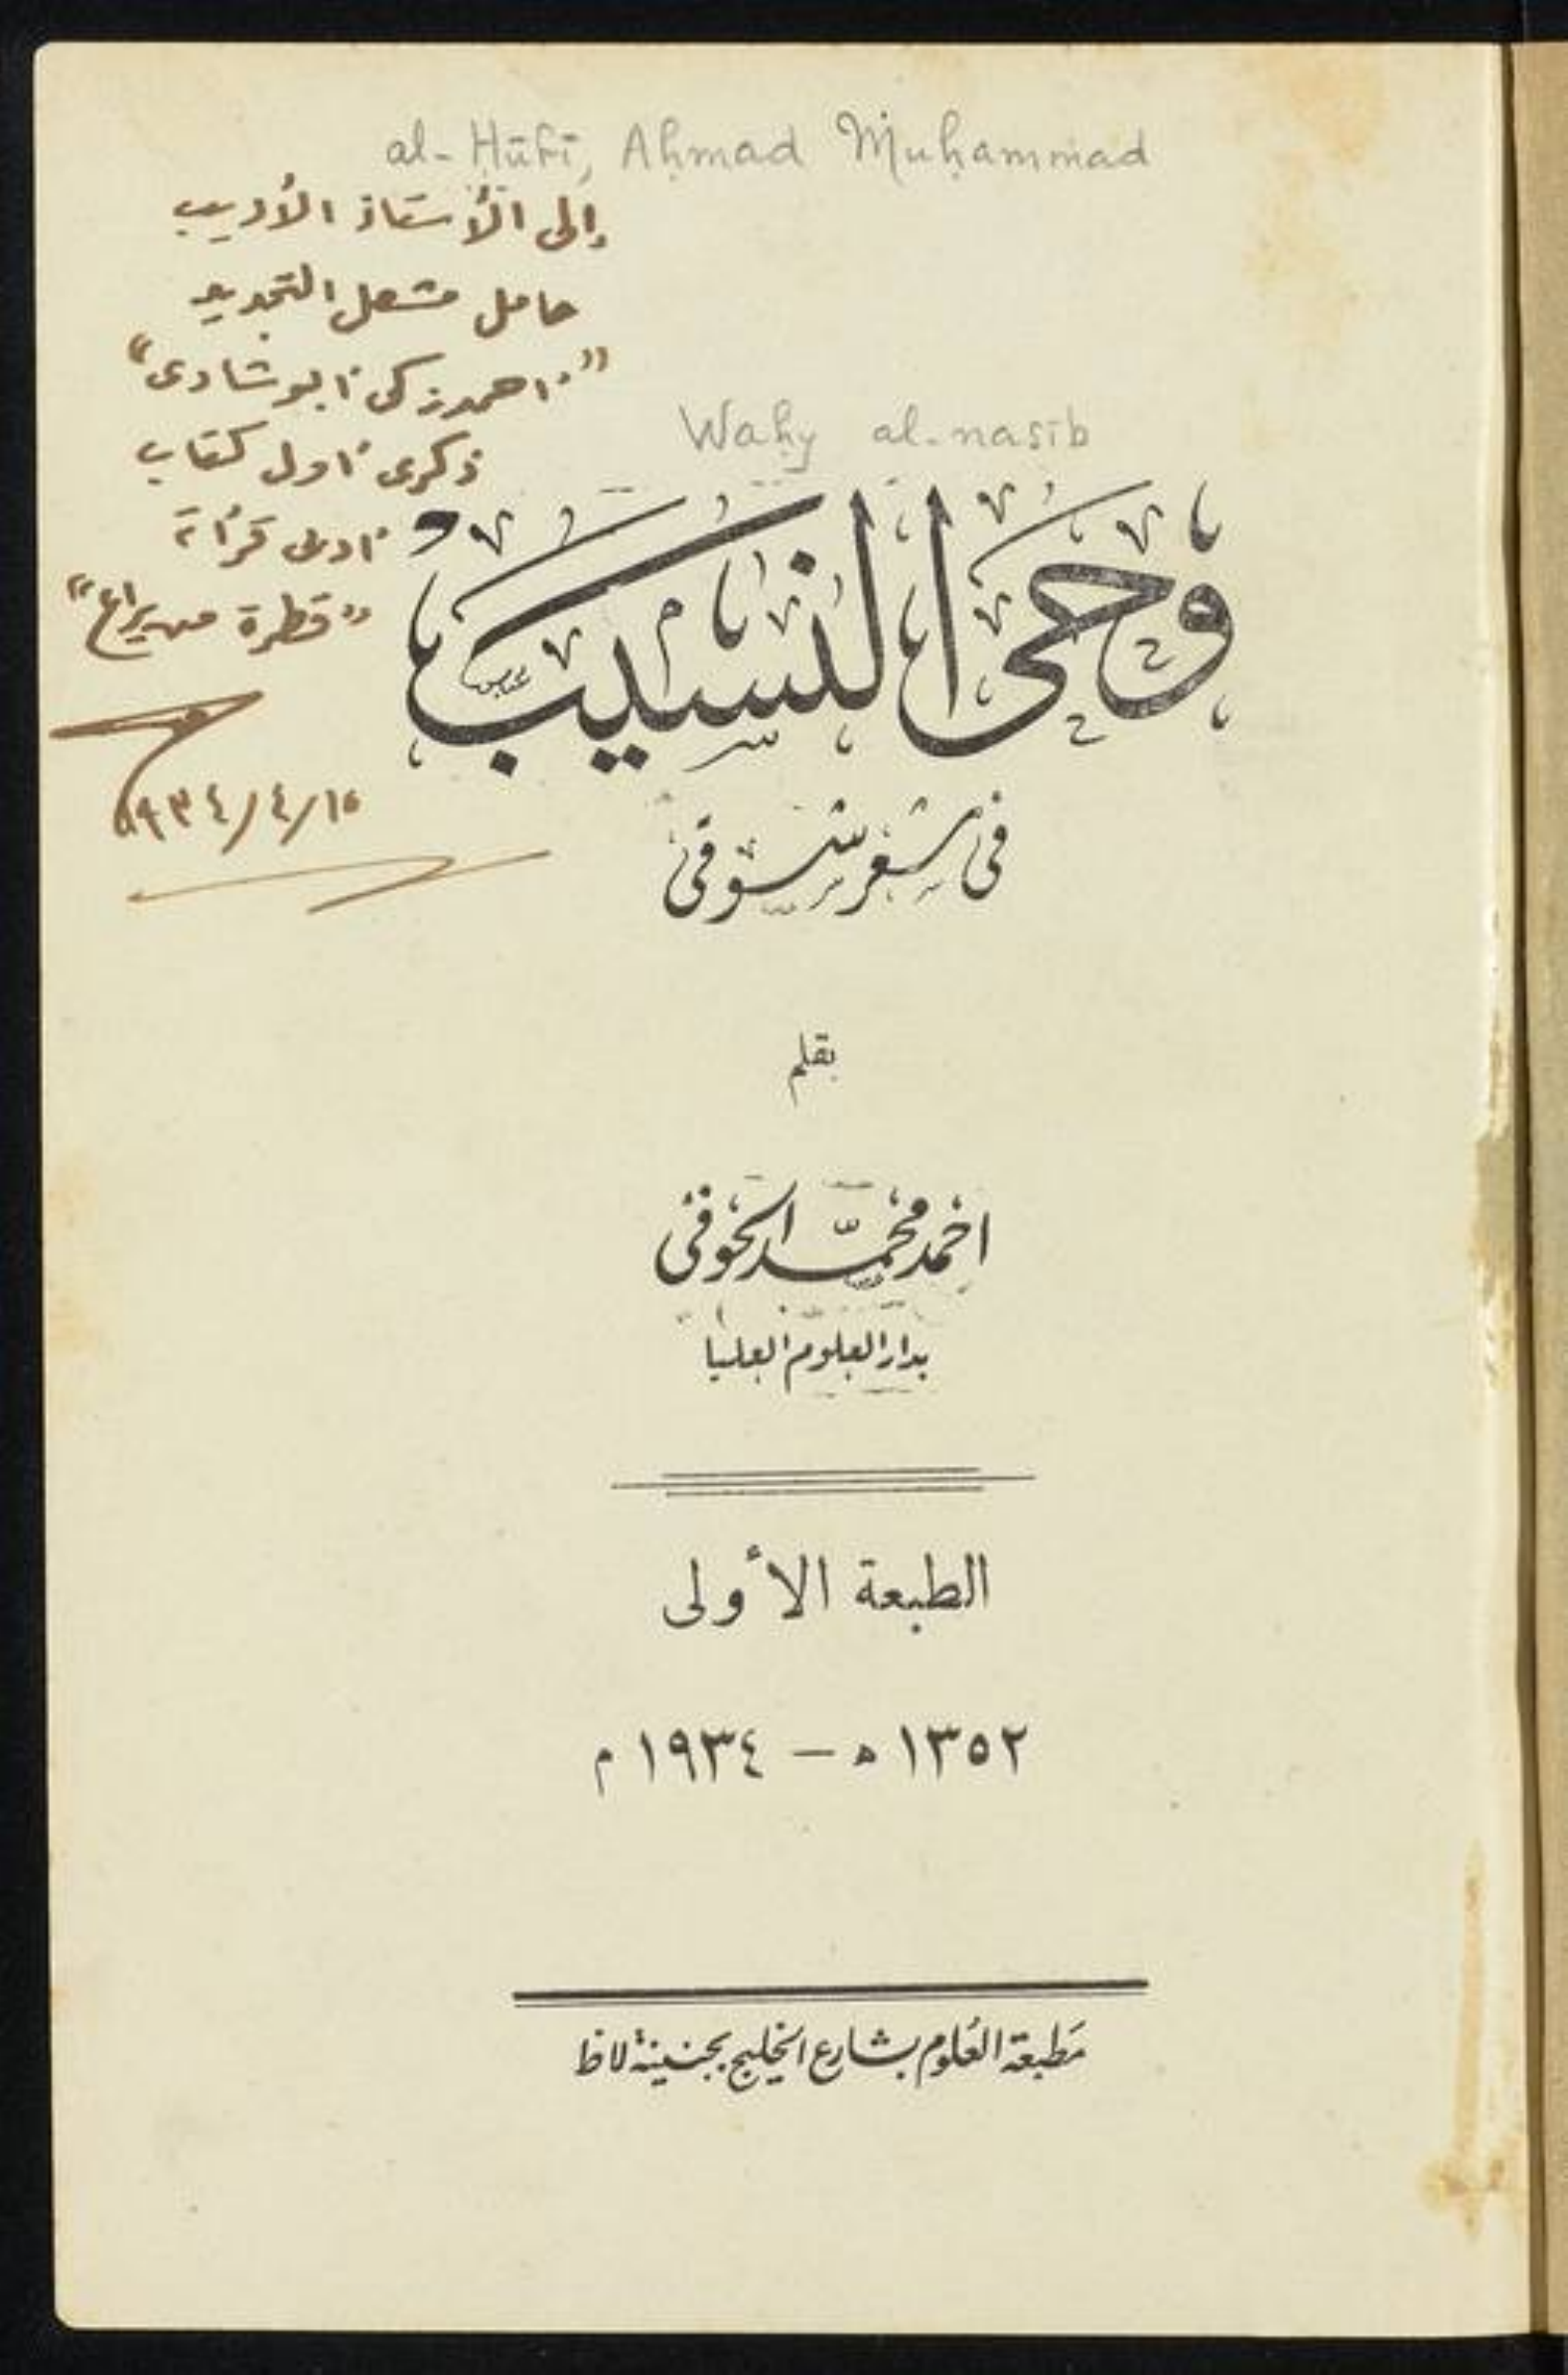 al-Ḥūfī, Aḥmad Muḥammad
إلى الأستاذ الأديب
حامل مشعل التجديد
"أحمد زكى أبو شادى"
ذكرى أول كتاب
أدبى قرأته
"قطرة من يراع"
١٩٣٤/٤/١٥
Waḥy al-nasīb
وحى النسيب
فى شعر شوقى
بقلم
احمد محمد الحوفى
بدار العلوم العليا
الطبعة الأولى
١٣٥٢ ه — ١٩٣٤ م
مطبعة العلوم بشارع الخليج بجنينة لاظ